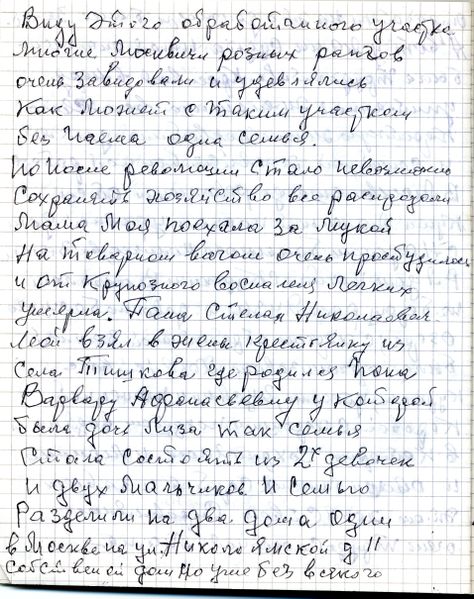 Виду этого обработанного участка
многие Москвичи розных рангов
очень завидовали и удевлялись
Как может с таким участком
без наема одна семья.
Но после революции стало невозможно
Сохранять хозяйство все распродали
Мама моя поехала за мукой
На товарном вагоне очень простудилась
и от крупозного воспаления легких
умерла. Папа Степан Николаевич
мой взял в жены крестьянку из
села Тишкова где родился папа
Варвару Афонасьевну у которой
была дочь Лиза так семья
Стала состоять из 2х девочек
и двух мальчиков И семью
Разделили на два дома один
в Москве на ул. Николоямской д 11
собственой дом но уже без всякого